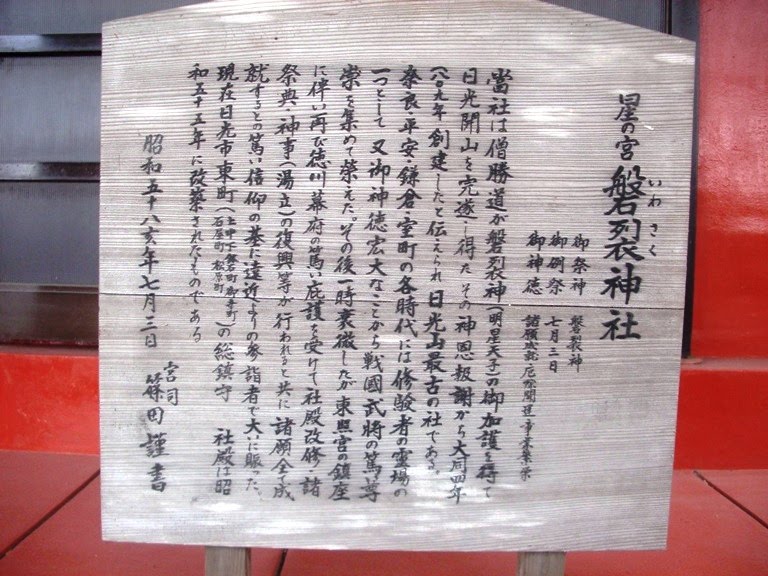 星の宮 磐裂神社
いわさく
御祭神 磐裂神
御例祭 七月三日
御神徳 諸願成就 厄除開運 事業繁栄
當社は僧勝道が磐裂神(明星天子)の御加護を得て
日光開山を完遂し得た その神恩報謝から大同四年
(八〇九年)創建したと伝えられ 日光山最古の社である。
奈良・平安・鎌倉・室町の各時代には修験者の霊場の
一つとして 又御神徳宏大なことから戦國武将の篤い尊
崇を集めて栄えた。その後一時衰微したが東照宮の鎮座
に伴い再び徳川幕府の篤い庇護を受けて社殿改修・諸
祭典・神事(湯立)の復興等が行われると共に諸願全て成
就するとの篤い信仰の基に遠近よりの参詣者で大いに賑った。
現在日光市東町(上中下鉢石町 御幸町 石屋町 松原町)の総鎮守 社殿は昭
和五十五年に改築されたものである
昭和五十八亥年七月三日
宮司 篠田謹書